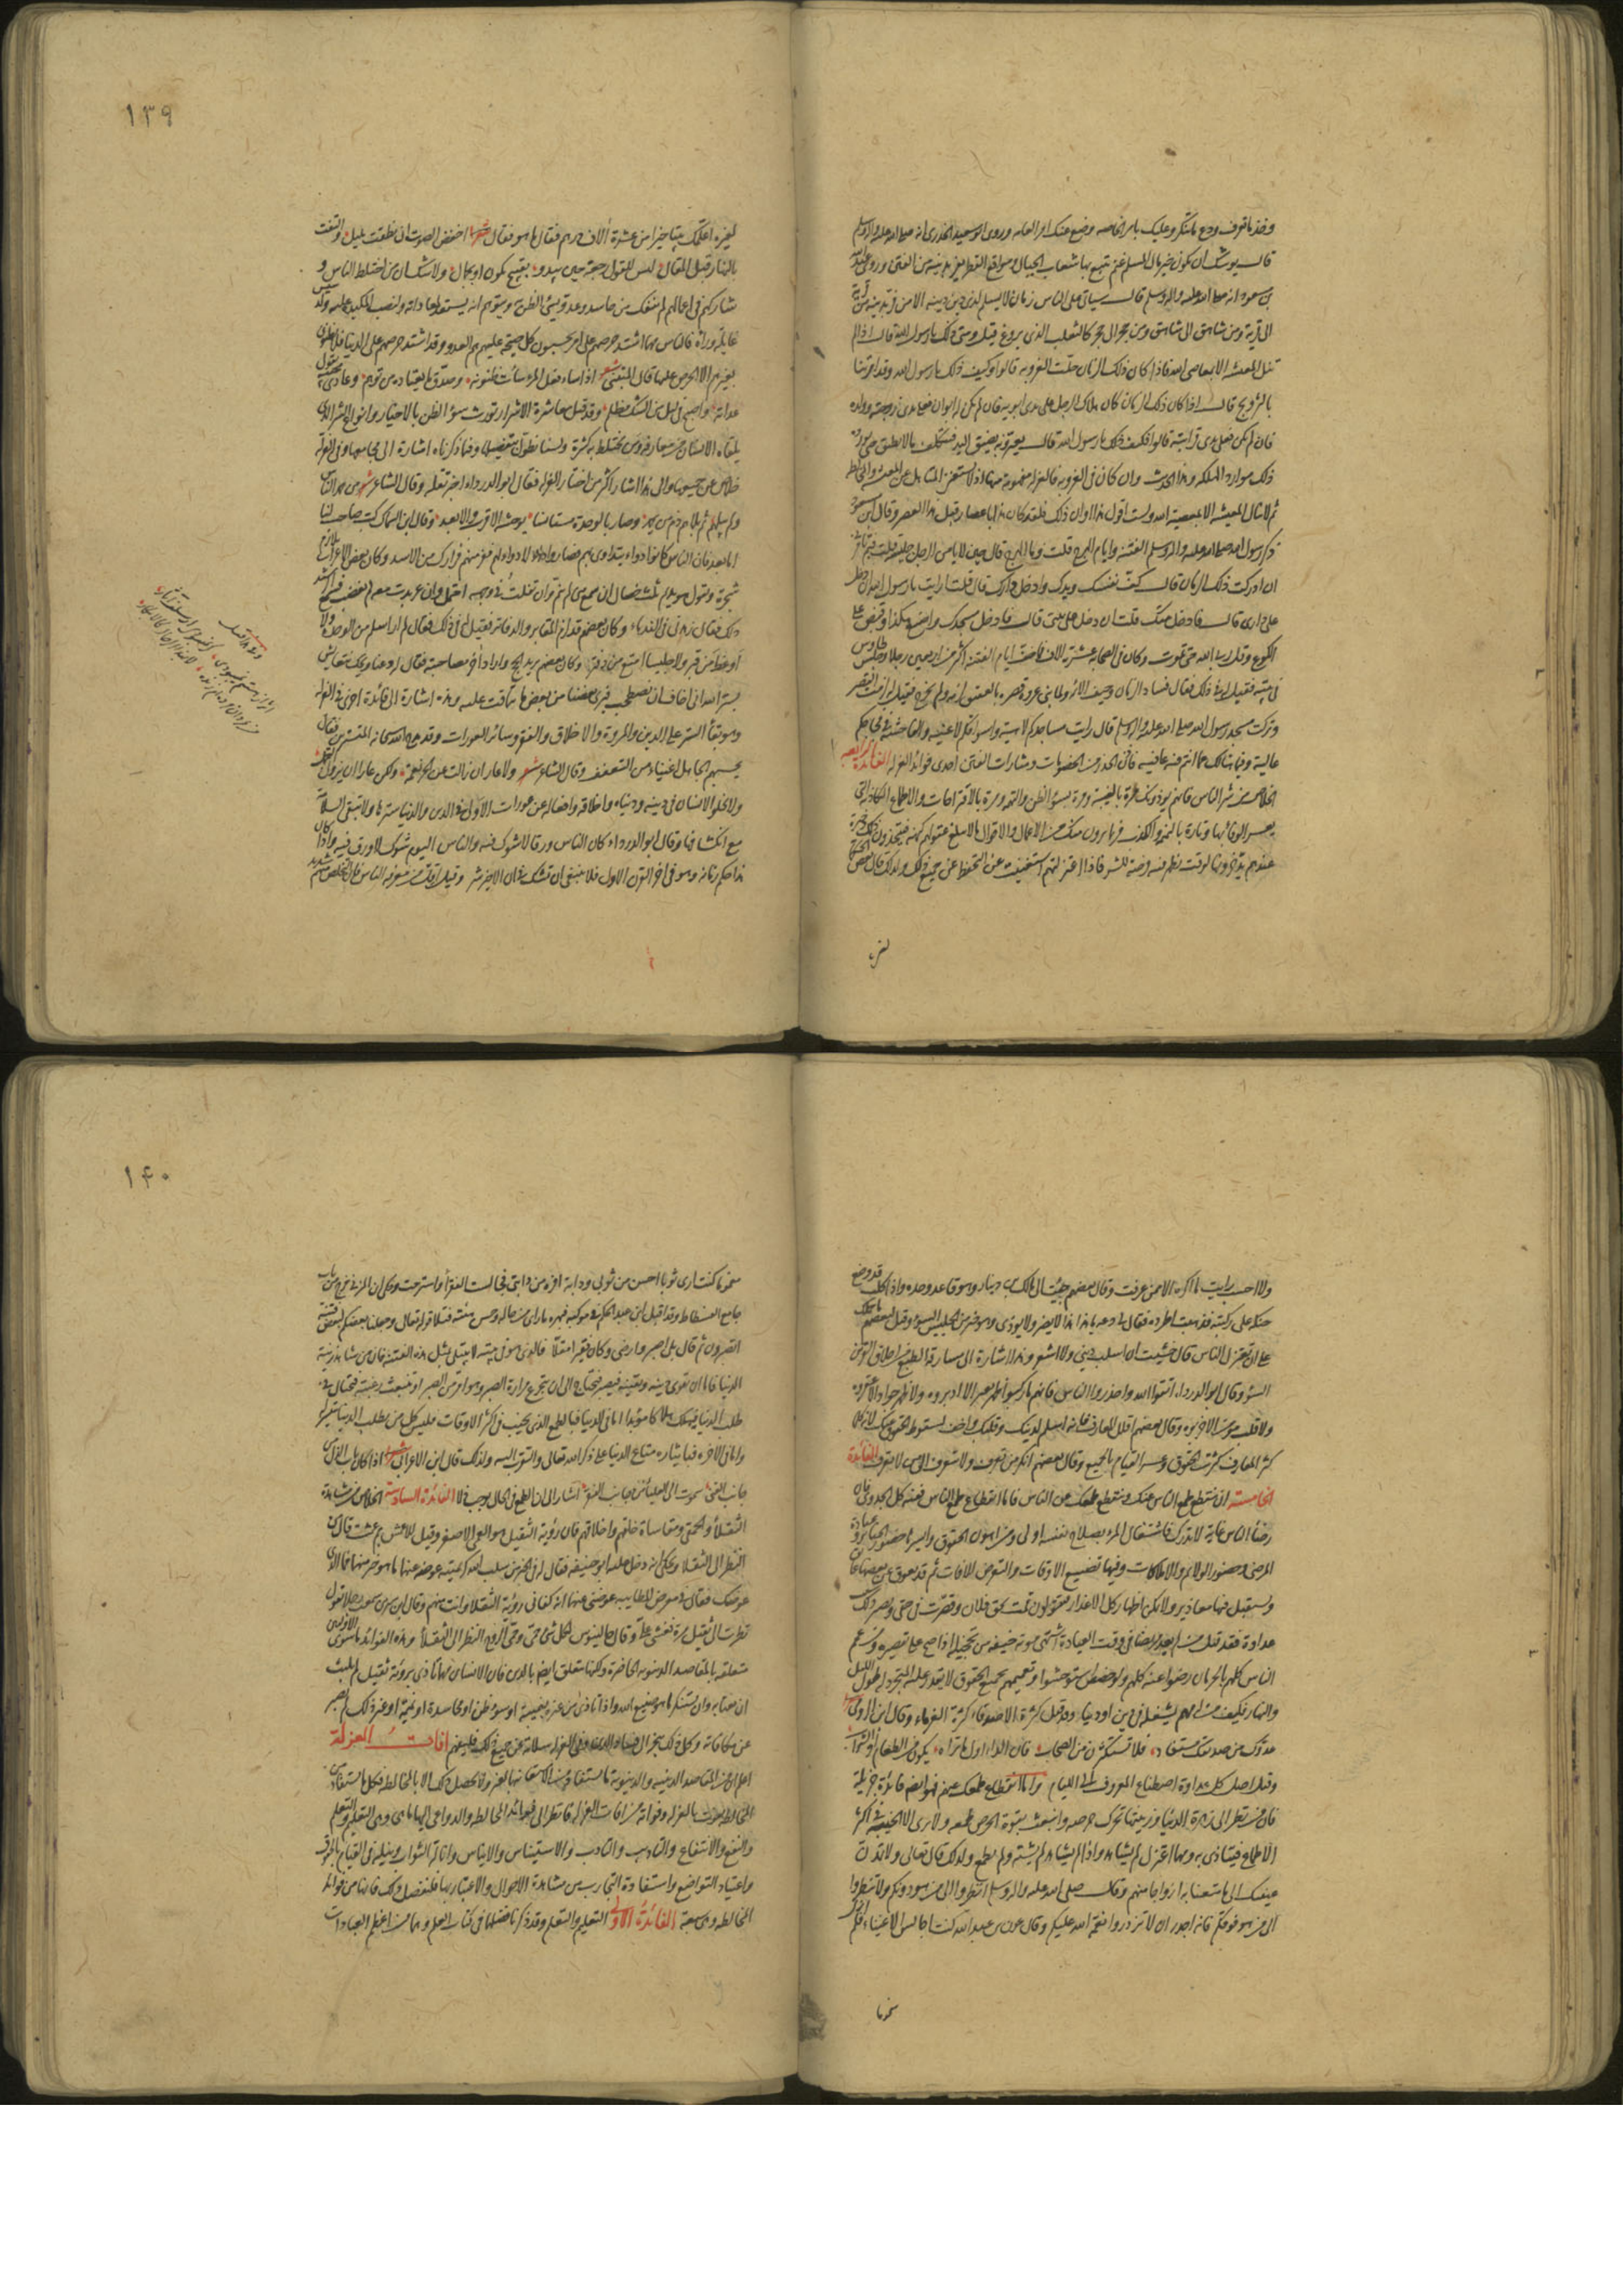 وخذ ما تعرف ودع ما تنكر وعليك بامر الخاصه ودع عنك امر العامه وروى ابو سعيد الخدرى انه صلى الله عليه واله وسلم
قال يوشك ان يكون خير مال المسلم غنم يتبع بها شعاب الجبال ومواقع القطر يفر بدينه من الفتن وروى عبد الله
بن مسعود انه صلى الله عليه واله وسلم قال سياتى على الناس زمان لا يسلم لذى دين دينه الا من فر بدينه من قرية
الى قرية ومن شاهق الى شاهق ومن حجر الى حجر كالثعلب الذى يروغ قيل ومتى ذلك يا رسول الله قال اذا لم
تنل المعيشة الا بمعاصى الله فاذا كان ذلك الزمان حلت العزوبه قالوا وكيف ذلك يا رسول الله وقد امرتنا
بالتزويج قال اذا كان ذلك الزمان كان هلاك الرجل على يدى ابويه فان لم يكن له ابوان فعلى يدى زوجته وولده
فان لم يكن فعلى يدى قرابته قالوا وكيف ذلك يا رسول الله قال يعيرونه بضيق اليد فيتكلف ما لا يطيق حتى يورده
ذلك موارد الهلكه وهذا الحديث وان كان فى العزوبه فالعزله مفهومة منها اذ لا يستغنى المتاهل عن المعيشة والمخالطه
ثم لا ينال المعيشه الا بمعصية الله ولست اقول هذا اوان ذلك فلقد كان هذا باعصار قبل هذا العصر وقال ابن مسعود
ذكر رسول الله صلى الله عليه واله وسلم الفتنه وايام الهرج قلت وما الهرج قال حين لا يامن الرجل جليسه قلت فبم تامرنى
ان ادركت ذلك الزمان قال كف نفسك ويدك وادخل دارك قال قلت ارايت يا رسول الله ان دخل
على دارى قال فادخل بيتك قلت ان دخل على بيتى قال فادخل مسجدك واصنع هكذا وقبض على
الكوع وقل ربى الله حتى تموت
فى بيته فقيل له فى ذلك فقال فساد الزمان وحيف الائمه ولما بنى عروه قصره بالعقيق لزمه ولم يخرج فقيل له لزمت القصر
وتركت مسجد رسول الله صلى الله عليه واله وسلم قال رايت مساجدكم لاهية واسواقكم لاغيه والفاحشة فى فجاجكم
عالية وفيما هنالك عما انتم فيه عافيه فاذن الحذر من الخصومات ومثارات الفتن احدى فوائد العزله الفائدة الرابعه
الخلاص من شر الناس فانهم يوذونك مرة بالغيبة ومرة بسوء الظن والتهمه ومرة بالاقتراحات والاطماع الكاذبة التى
يعسر الوفاء بها وتارة بالنميمه والكذب فربما يرون منك من الاعمال والاقوال ما لا تبلغ عقولهم كنهه فيتخذون ذلك ذخيرة
عندهم يدخرونها لوقت تظهر فيه فرصة للشر فاذا اعتزلتهم استغنيت عن التحفظ عن جميع ذلك ولذلك قال بعض الحكما
لغيره
١٣٩
لغيره اعلمك بيتا خيرا من عشرة الاف درهم فقال ما هو فقال شعر اخفض الصوت ان نطقت بليل والتفت
بالنهار قبل المقال ليس للقول رجعة حين يبدو بقبيح يكون او بجمال ولا شك ان من اختلط بالناس و
شاركهم فى اعمالهم لم ينفك من حاسد وعدو يسئ الظن به ويتوهم انه يستعد لمعاداته ولنصب المكيدة عليه وتدسيس
غايله وراه فالناس مهما اشتد حرصهم على امر يحسبون كل صيحة عليهم هم العدو وقد اشتد حرصهم على الدنيا فلا يظنون
بغيرهم الا الحرص عليها قال المتنبى شعر اذا ساء فعل المرء ساءت ظنونه وصدق ما يعتاده من توهم وعادى محبيه بقول
عداته واصبح فى ليل من الشك مظلم وقد قيل معاشرة الاشرار تورث سوء الظن بالاخيار وانواع الشر الذى
يلقاه الانسان من معارفه ومن يختلط به كثيرة ولسنا نطول بتفصيلها وفيما ذكرناه اشارة الى مجامعها وفى العزلة
خلاص عن جميعها والى هذا اشار اكثر من اختار العزله فقال ابو الدرداء اخبر تقله وقال الشاعر شعر من حمد الناس
ولم يبلهم ثم بلاهم ذم من يحمد وصار بالوحدة مستانسا يوحشه الاقرب والابعد وقال ابن السماك كتب صاحب لنا
اما بعد فان الناس كانوا دواء يتداوى بهم فصاروا داء لا دواء له ففر منهم فرارك من الاسد وكان بعض الاعراب يلازم
شجرة ويقول هو نديم فيه ثلث خصال ان سمع منى لم ينم وان تفلت فى وجهه احتمل وان عربدت معه لم يغضب فسمع الرشيد
ذلك فقال زهدنى فى الندماء وكان بعضهم قد لزم المقابر والدفاتر فقيل له فى ذلك فقال لم ار اسلم من الوحدة ولا
اوعظ من قبر ولا جليسا امتع من دفتر
بستر الله انى اخاف ان نصطحب فيرى بعضنا من بعض ما نتماقت عليه وهذه اشارة الى فائدة اخرى فى العزله
وهو بقاء الستر على الدين والمروة والاخلاق والفقر وسائر العورات وقد مدح الله سبحانه المتسترين فقال
يحسبهم الجاهل اغنياء من التعفف وقال الشاعر شعر ولا عار ان زالت عن الحر نعمة ولكن عارا ان يزول التجمل
ولا يخلو الانسان فى دينه ودنياه واخلاقه وافعاله عن عورات الاولى فى الدين والدنيا سترها ولا تبقى السلامة
مع انكشافها وقال ابو الدرداء كان الناس ورقا لا شوك فيه والناس اليوم شوك لا ورق فيه واذا كان
هذا حكم زمانه وهو فى اخر القرن الاول فلا ينبغى ان تشك فى ان الاخير شر
ولا احسب رايت ما اكره الا ممن عرفت وقال بعضهم جئت الى مالك بن دينار وهو قاعد وحده واذا كلب قد وضع
حنكه على ركبته فذهبت اطرده فقال دعه يا هذا هذا لا يضر ولا يوذى وهو خير من الجليس السوء وقيل لبعضهم ما حملك
على ان تعتزل الناس قال خشيت ان اسلب دينى ولا اشعر وهذه اشارة الى مسارقة الطبع من اخلاق القرين
السوء وقال ابو الدرداء اتقوا الله واحذروا الناس فانهم ما ركبوا ظهر بعير الا ادبروه ولا ظهر جواد الا عقروه
ولا قلب مومن الا خربوه وقال بعضهم اقلل المعارف فانه اسلم لدينك وقلبك واخف لسقوط الحقوق عنك لانه كلما
كثر المعارف كثرت الحقوق وعسر القيام بالجميع وقال بعضهم انكر من تعرف ولا تتعرف الى من لا تعرف الفائدة
الخامسة ان ينقطع طمع الناس عنك وينقطع طمعك عن الناس فاما انقطاع طمع الناس ففيه كل الجدوى فان
رضا الناس غاية لا تدرك فاشتغال المرء بصلاح نفسه اولى ومن اهون الحقوق وايسرها حضور الجنازه وعيادة
المرضى وحضور الولائم والاملاكات وفيها تضييع الاوقات والتعرض للافات ثم قد يعوق عن بعضها عائق
ويستقبل فيها معاذير ولا يمكن اظهار كل الاعذار فيقولون قمت بحق فلان وقصرت فى حقى ويصير ذلك
عداوة فقد قيل من لم يعد مريضا فى وقت العيادة اشتهى موته خيفة من تخجيله اذا صح على تقصيره ومن عم
الناس كلهم بالحرمان رضوا عنه كلهم ولو خصص استوحشوا وتعميمهم بجميع الحقوق لا يقدر عليه المتجرد له طول الليل
والنهار فكيف من له مهم يشغله فى دين او دنيا وقد قيل كثرة الاصدقاء كثرة الغرماء وقال ابن الرومى شعر
عدوك من صديقك مستفاد فلا تستكثرن من الصحاب فان الداء اول ما تراه يكون من الطعام او الشراب
وقيل اصل كل عداوة اصطناع المعروف الى اللئام واما انقطاع طمعك عنهم فهو ايضا فائدة جزيلة
فان من نظر الى زهرة الدنيا وزينتها تحرك حرصه وانبعث بقوة الحرص طمعه ولا يرى الا الخيبه فى اكثر
الاطماع فيتاذى به ومهما اعتزل لم يشاهد واذا لم يشاهد لم يشته ولم يطمع ولذلك قال تعالى ولا تمدن
عينيك الى ما متعنا به ازواجا منهم وقال صلى الله عليه واله وسلم انظروا الى من هو دونكم ولا تنظروا
الى من هو فوقكم فانه اجدر ان لا تزدروا نعمة الله عليكم وقال عون بن عبد الله كنت اجالس الاغنياء فلم ازل
مغموما
١٤٠
مغموما كنت ارى ثوبا احسن من ثوبى ودابة افره من دابتى فجالست الفقراء فاسترحت وحكى ان المزنى خرج من باب
جامع الفسطاط وقد اقبل ابن عبد الحكم فى موكبه فبهره ما راى من حاله وحسن هيئته فتلا قوله تعالى وجعلنا بعضكم لبعض فتنة
اتصبرون ثم قال بلى اصبر وارضى وكان فقيرا مقلا فالذى هو فى بيته لا يبتلى بمثل هذه الفتنة فان من شاهد زينة
الدنيا فاما ان يقوى دينه ويقينه فيصبر فيحتاج الى ان يتجرع مرارة الصبر وهو امر من الصبر او تنبعث رغبته فيحتال فى
طلب الدنيا فيهلك هلاكا مؤبدا اما فى الدنيا فبالطمع الذى يخيب فى اكثر الاوقات فليس كل من يطلب الدنيا تتيسر له
واما فى الاخره فبايثاره متاع الدنيا على ذكر الله تعالى والتقرب اليه ولذلك قال ابن الاعرابى شعر اذا كان باب الذل من
جانب الغنى سموت الى العلياء من جانب الفقر اشار الى ان الطمع فى الحال يوجب ذلا الفائدة السادسة الخلاص من مشاهدة
الثقلاء والحمقى ومقاساة خلقهم واخلاقهم فان رؤية الثقيل هو العمى الاصغر وقيل للاعمش مم عمشت قال من
النظر الى الثقلاء وحكى انه دخل عليه ابو حنيفه فقال له فى الخبر من سلب الله كريمتيه عوضه عنهما ما هو خير منهما فما الذى
عوضك فقال فى معرض المطايبه عوضنى عنهما انه كفانى رؤية الثقلاء وانت منهم وقال ابن سيرين سمعت رجلا يقول
نظرت الى ثقيل مرة فغشى على وقال جالينوس لكل شئ حمى وحمى الروح النظر الى الثقلاء وهذه الفوائد ما سوى الاوليين
متعلقه بالمقاصد الدنيويه الحاضرة ولكنها تتعلق ايضا بالدين فان الانسان مهما تاذى برؤية ثقيل لم يلبث
ان يغتابه وان يستنكر ما هو صنيع الله واذا تاذى من غيره بغيبة او سوء ظن او محاسدة او نميمة او غير ذلك لم يصبر
عن مكافاته وكل ذلك يجر الى فساد الدين وفى العزله سلامة عن جميع ذلك فليفهم افات العزلة
اعلم ان من المقاصد الدينيه والدنيوية ما يستفاد من الاستعانة بالغير ولا يحصل ذلك الا بالمخالطه فكل ما يستفاد من
المخالطه يفوت بالعزله وفواته من افات العزله فانظر الى فوائد المخالطه والدواعى اليها ما هى وهى التعليم والتعلم
والنفع والانتفاع والتاديب والتادب والاستيناس والايناس وانالة الثواب ونيله فى القيام بالحقوق
واعتياد التواضع واستفادة التجارب من مشاهدة الاحوال والاعتبار بها فلنفصل ذلك فانها من فوائد
المخالطه وهى سبعة الفائدة الاولى التعليم والتعلم وقد ذكرنا فضلهما فى كتاب العلم وهما من اعظم العبادات